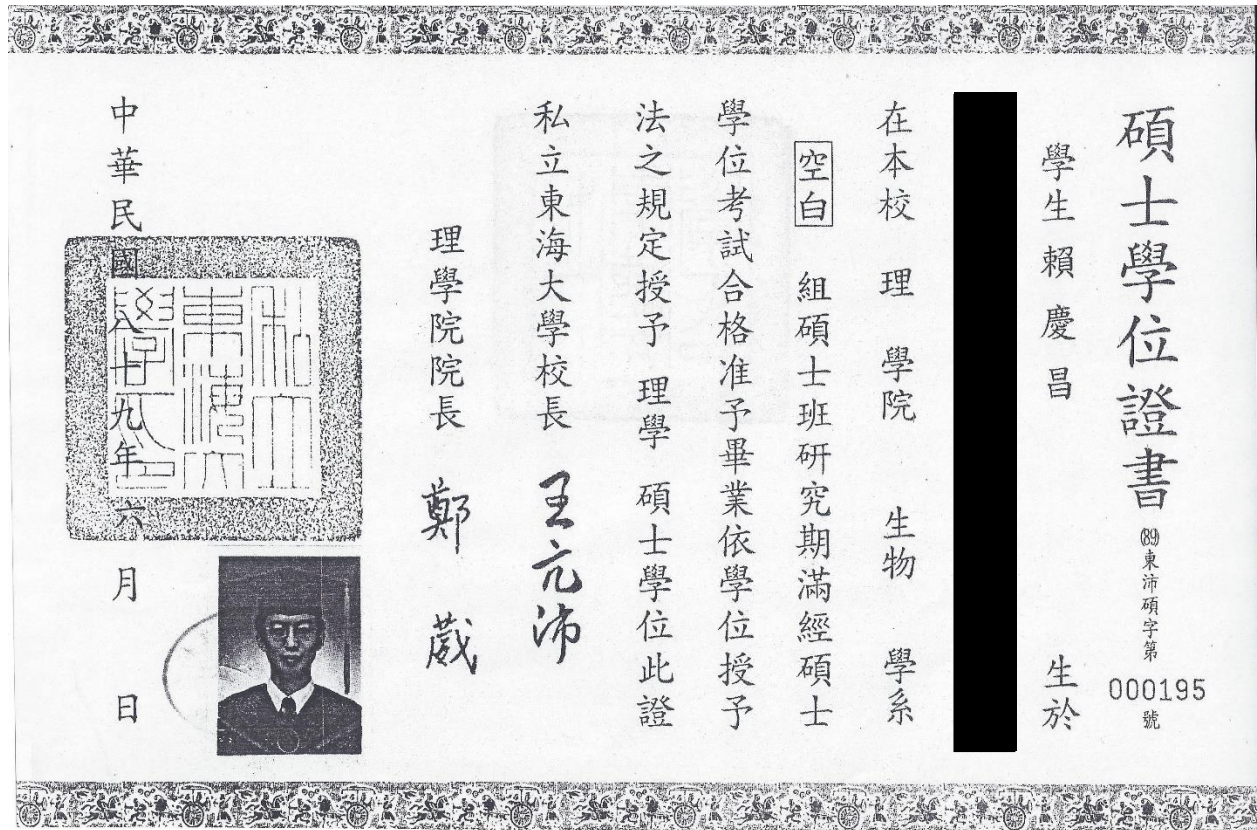 碩士學位證書 (89)東沛碩字第000195號
學生 賴慶昌 生於
在本校 理 學院 生物 學系
空白 組碩士班研究期滿經碩士
學位考試合格准予畢業依學位授予
法之規定授予 理學 碩士學位此證
私立東海大學校長 王亢沛
理學院院長 鄭 葳
中華民國八十九年六月 日
私立
東海大
學之印